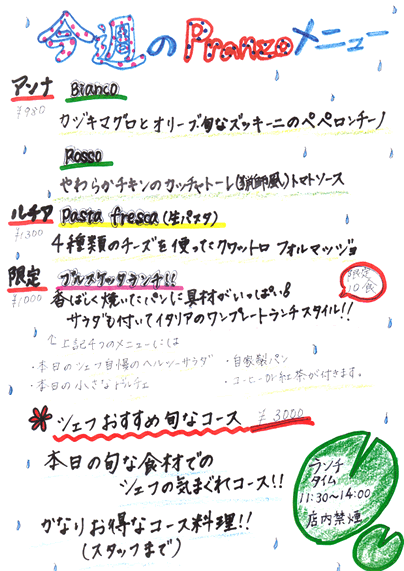 今週のPranzoメニュー
アンナ Bianco
¥980
カジキマグロとオリーブ旬なズッキーニのペペロンチーノ
Rosso
やわらかチキンのカッチャトーレ(猟師風)トマトソース
ルチア Pasta fresca(生パスタ)
¥1300
4種類のチーズを使ったクワットロ フォルマッジョ
限定 ブルスケッタランチ!!
¥1000
限定
10食
香ばしく焼いたパンに具材がいっぱい!
サラダも付いてイタリアのワンプレートランチスタイル!!
上記4つのメニューには
・本日のシェフ自慢のヘルシーサラダ ・自家製パン
・本日の小さなドルチェ ・コーヒーか紅茶が付きます。
シェフおすすめ旬なコース ¥3000
本日の旬な食材での
シェフの気まぐれコース!!
かなりお得なコース料理!!
(スタッフまで)
ランチ
タイム
11:30~14:00
店内禁煙